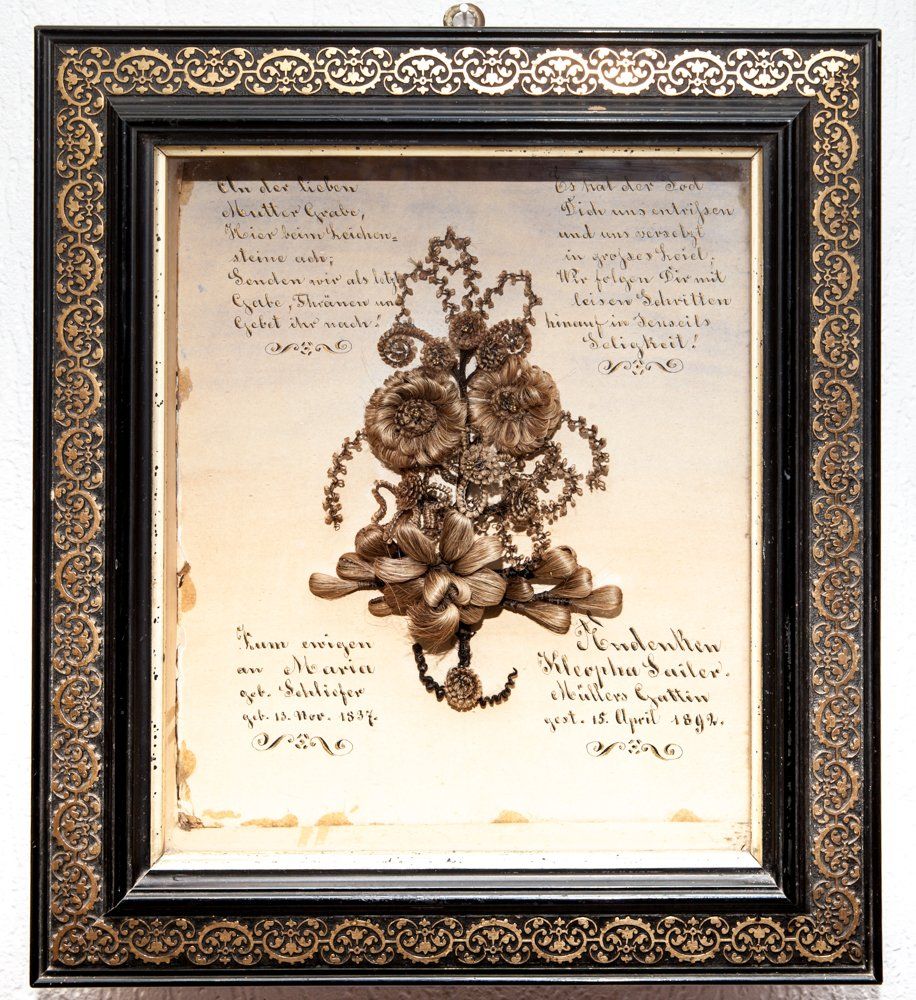 An der lieben
Mutter Grabe,
Hier beim Leichen=
steine ach;
Senden wir als letzt
Gabe, Thränen un
Gebet ihr nach!
Es hat der Tod
Dich uns entrissen
und uns versetzt
in grosses Leid.
Wir folgen Dir mit
leisen Schritten
hinauf in Jenseits
Seligkeit!
Zum ewigen
an Maria
geb. Schliefer
geb. 13. Nov. 1837.
Andenken
Kleopha Sailer.
Müllers Gattin
gest. 15. April 1892.